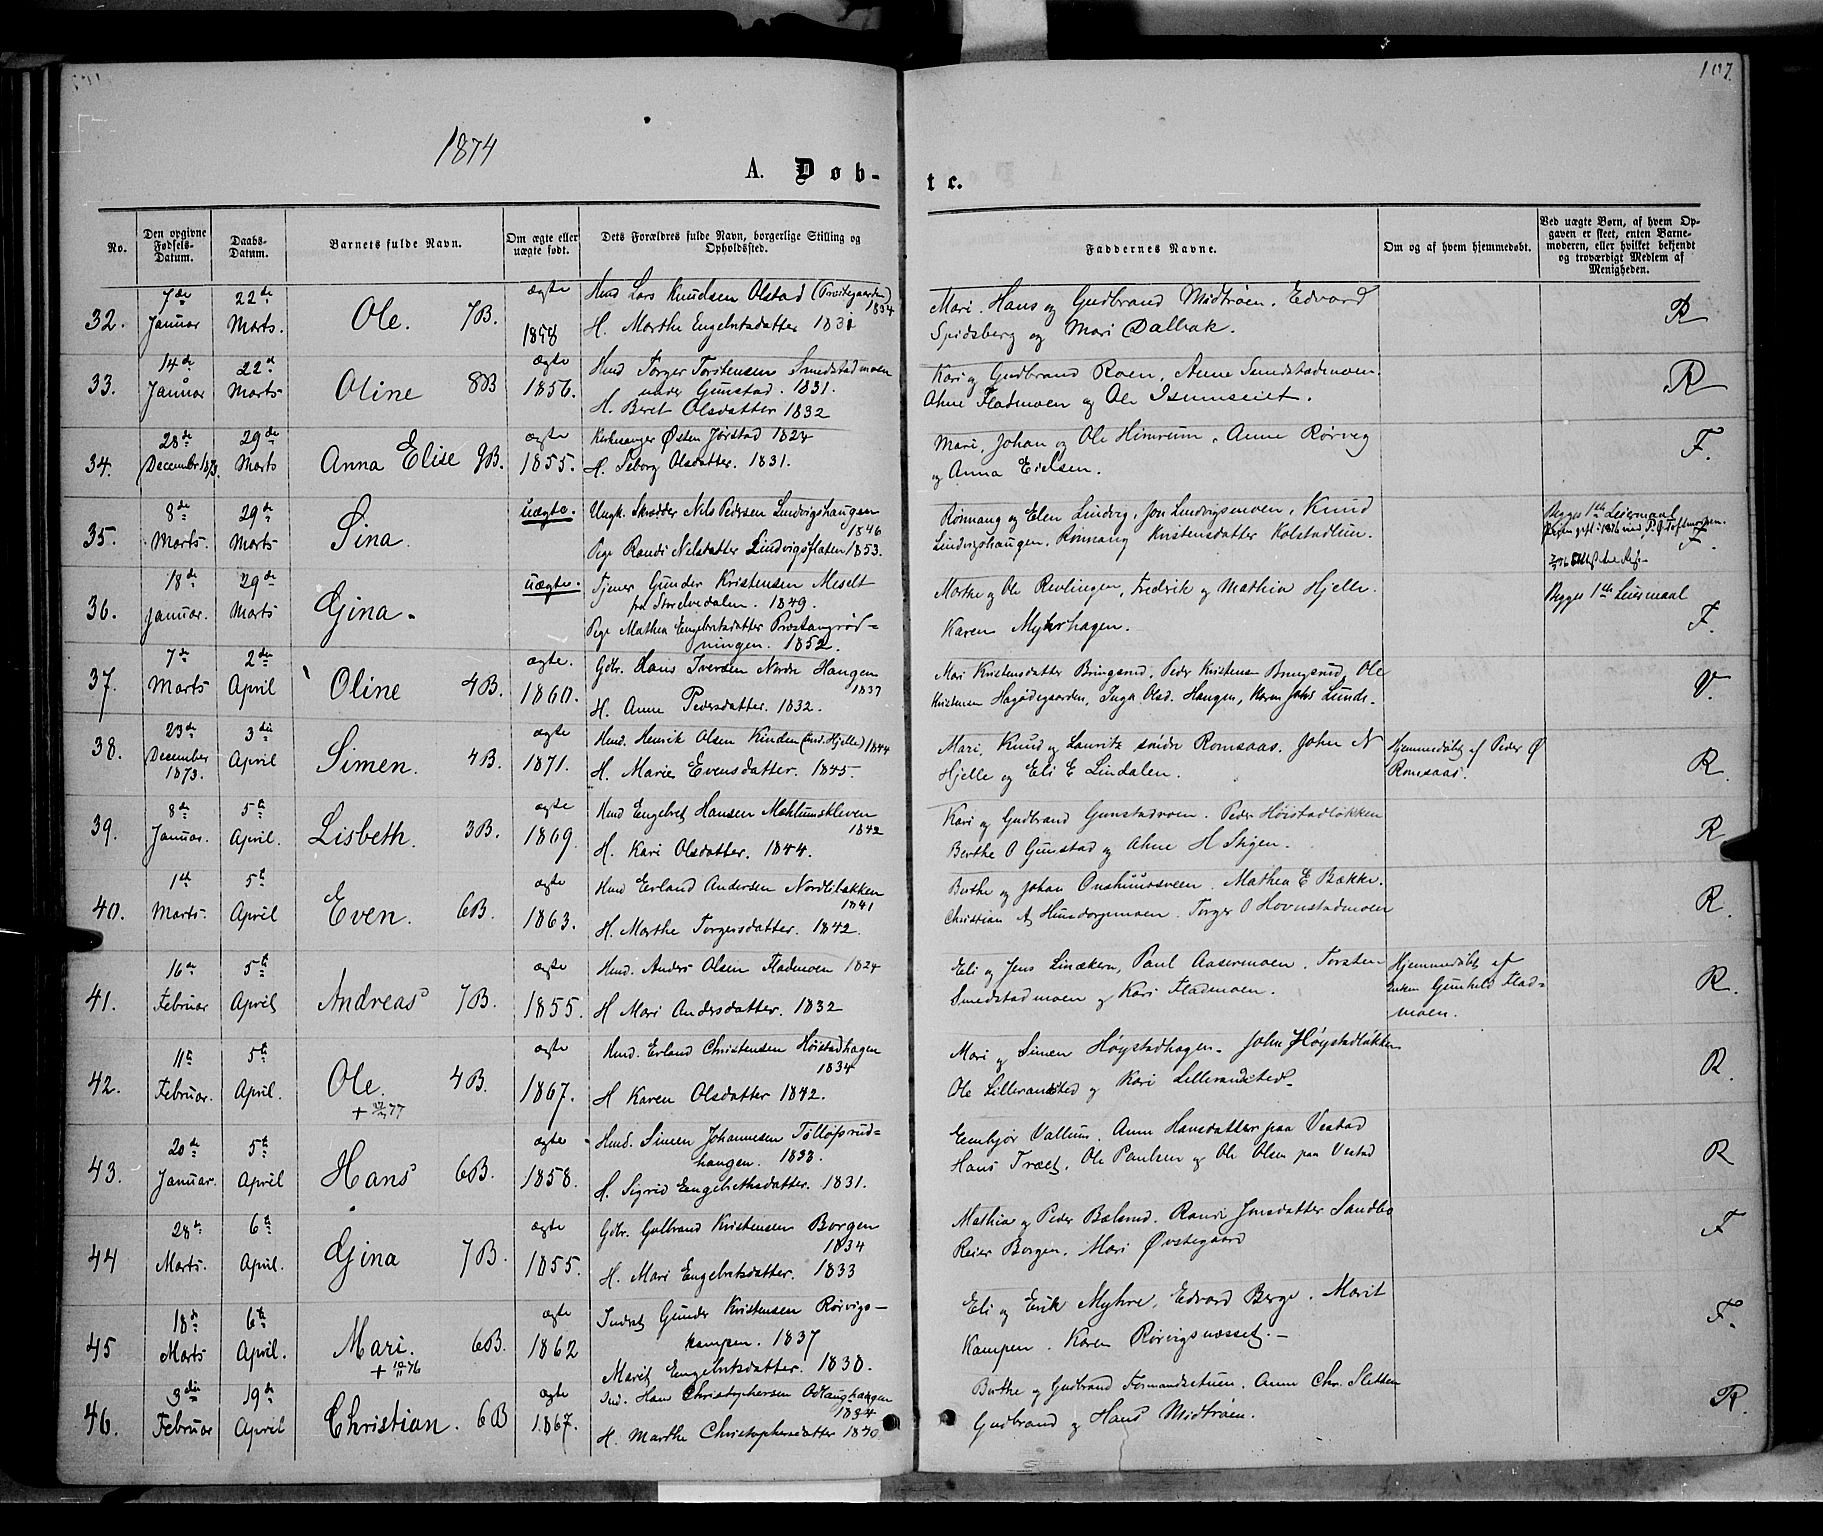 107.
1874
A. Døb-
te.
No.
Den opgivne Fødsels-Datum.
Daabs-Datum.
Barnets fulde Navn.
Om ægte eller uægte født.
Dets Forældres fulde Navn, borgerlige Stilling og Opholdssted.
Faddernes Navne.
Om og af hvem hjemmedøbt.
Ved uægte Børn, af hvem Opgaven er skeet, enten Barnemoderen, eller hvilket bekjendt og troværdigt Medlem af Menigheden.
32.
7de Januar
22de Marts.
Ole. 7B.
ægte 1858
Husd Lars Knudsen Olstad
1834
H. Marthe Engebretsdatter 1831
Mari, Hans og Gudbrand Midtrøen. Edvard
Spidsberg og Mari Dalbak.
R
33.
14de Januar
22de Marts
Oline 8B
ægte 1856.
Husd Torger Torstensen Smedstadmoen
under Gunstad. 1831.
H. Beret Olsdatter 1832
Kari og Gudbrand Roen, Anne Smedstadmoen.
Ahne Flademoen og Ole Isumseiet.
R
34.
28de December 1873.
29de Marts
Anna Elise 9B.
ægte 1855.
Kirkesanger Østen Jørstad 1824
H. Seborg Olsdatter. 1831.
Mari, Johan og Ole Himrum, Anne Rørvig
og Anna Eielsen.
F.
35.
8de Marts.
29de Marts
Sina
uægte.
Ungk. Skrædder Nils Pedersen Lundvigshaugen
1846
Pige Randi Nilsdatter Lindvigsflaten 1853.
Rønnaug og Elen Lindvig, Jon Lundvigsmoen, Knud
Lindvigshaugen, Rønnaug Kristensdatter Kolstadlien.
Begges 1ste Leiermaal
F.
36.
18de Januar.
29de Marts
Gina.
uægte.
Tjener Gunder Kristensen Meselt
fra Storelvedalen. 1849.
Pige Mathea Engebretsdatter Prestangrød-
ningen. 1852.
Marthe og Ole Revlingen, Fredrik og Mathia Hjelle.
Karen Myhrhagen.
Begges 1ste Leiermaal
F.
37.
7de Marts
2den April
Oline 4B.
ægte. 1860.
Gdbr. Hans Iversen Nordre Haugen
1837
H. Anne Pedersdatter. 1832.
Mari Kristensdatter Bringsrud, Peder Kristensen Bringsrud, Ole
Kristensen Hagødegaarden, Inga Olsd. Haugen, Karen Johs Lunde.
V.
38.
23de December 1873.
3die April
Simen. 4B.
ægte 1871.
Husd. Henrik Olsen Kinden (ind. Hjelle) 1844
H. Maries Evensdatter. 1845.
Mari, Knud og Lauritz søndre Romsaas. John N
Hjelle og Eli E Lindalen.
Hjemmedøbt af Peder Ø
Romsaas.
R.
39.
8de Januar.
5te April.
Lisbeth. 3B.
ægte 1869.
Husd Engebret Hansen Mæhlumskleven
1842
H. Kari Olsdatter. 1844.
Kari og Gudbrand Gunstadmoen. Peder Høistadløkken
Berthe O Gunstad og Ahne H Stigen.
R
40.
1ste Marts.
5te April
Even. 6B.
ægte 1863.
Husd Erland Andersen Nordliløkken
1841
H. Marthe Torgersdatter. 1842.
Berthe og Johan Onshuusveen. Mathea E Bække.
Christian A Hundorpmoen. Torger O Hovnstadmoen
R.
41.
16de Februar
5te April
Andreas 7B.
ægte 1855.
Husd. Anders Olsen Flademoen 1824
H Mari Andersdatter. 1832
Eli og Jens Linækern, Paul Aasermoen. Torsten
Smedstadmoen og Kari Flademoen.
Hjemmedøbt af
Enken Gunhild Flad-
moen.
R.
42.
11te Februar.
5te April.
Ole. 4B.
ægte 1867.
Husd. Erland Christensen Høistadhagen
1834
H Karen Olsdatter. 1842.
Mari og Simen Høystadhagen. John Høystadløkken
Ole Lillerandsted og Kari Lillerandsted.
R.
43.
20de Januar.
5te April
Hans 6B.
ægte 1858.
Husd. Simen Johannesen Tollofsrud-
haugen. 1833.
H. Sigrid Engebrethsdatter. 1831.
Embjør Vallum. Anne Hansdatter paa Vestad
Hans Træet, Ole Paulsen og Ole Olsen paa Vestad
R
44
28de Marts.
6te April.
Gina 7B.
ægte 1855.
Gdbr. Gulbrand Kristensen Borgen
1834
H. Mari Engebretsdatter. 1833
Mathia og Peder Bælsrud. Randi Jonsdatter Sandbo
Reier Borgen. Mari Øvstegaard
F
45
18de Marts
6te April.
Mari. 6B.
ægte 1862
Inderst Gunder Kristensen Rørvigs-
kampen. 1837
Marit Engebretsdatter. 1830.
Eli og Erik Myhre, Edvard Berge. Marit
Kampen. Karen Rørvigsnæsset.
F.
46.
3die Februar
19de April
Christian. 6B
ægte 1867.
Ind. Hans Christophersen Odlaughaugen
1834
H. Marthe Christophersdatter 1840
Berthe og Gudbrand Formandsstuen. Anne Chr. Sletten
Gudbrand og Hans Midtrøen.
R.